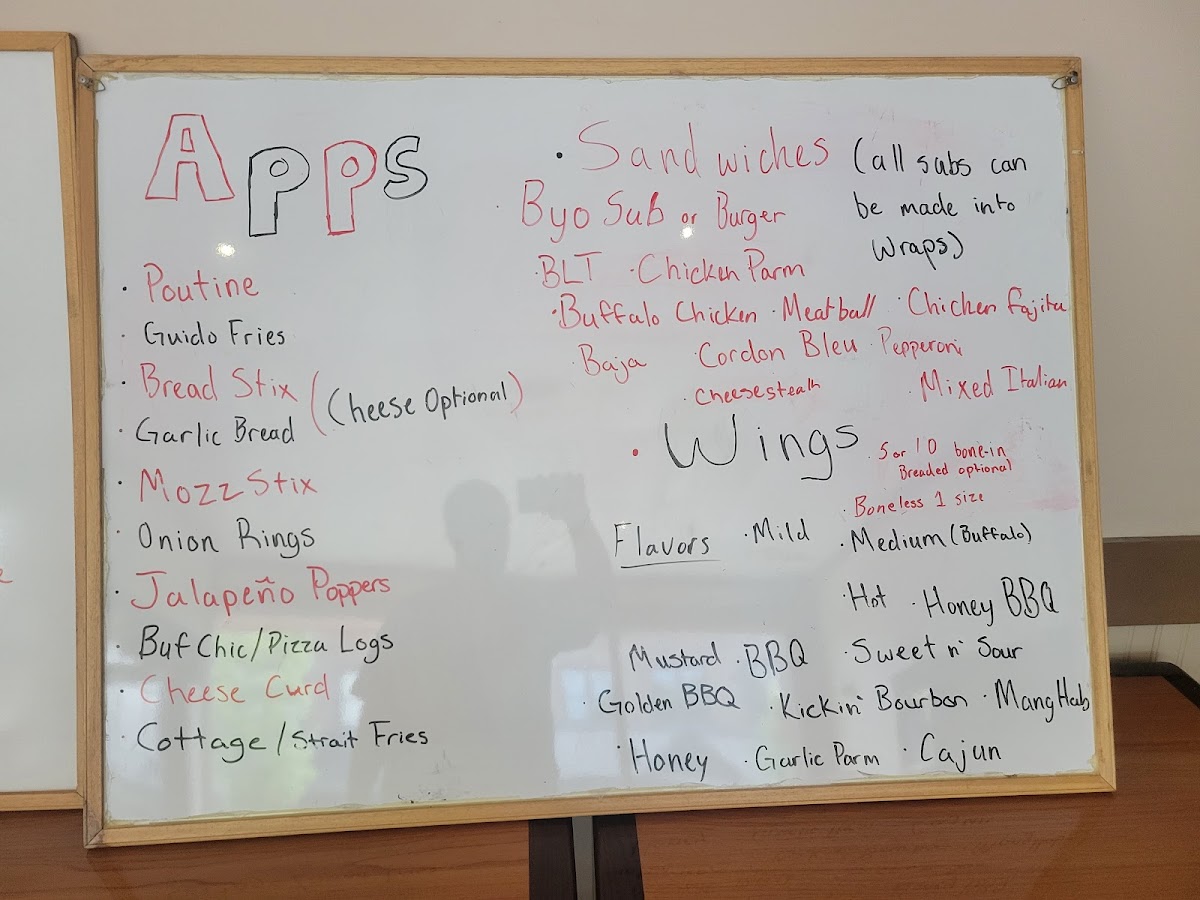 Apps
• Poutine
· Guido Fries
· Bread Stix
· Garlic Bread
(Cheese Optional)
· Mozz Stix
· Onion Rings
· Jalapeño Poppers
· Buf Chic/Pizza Logs
· Cheese Curd
· Cottage/Strait Fries
• Sandwiches (all subs can
be made into
Wraps)
· Byo Sub or Burger
· BLT · Chicken Parm
· Buffalo Chicken · Meatball · Chicken Fajita
· Baja Cordon Bleu · Pepperoni
· Cheesesteak · Mixed Italian
• Wings
· 5 or 10 bone-in
Breaded optional
· Boneless 1 size
Flavors · Mild · Medium (Buffalo)
· Hot · Honey BBQ
Mustard · BBQ · Sweet n' Sour
· Golden BBQ · Kickin' Bourbon · MangHab
· Honey · Garlic Parm · Cajun